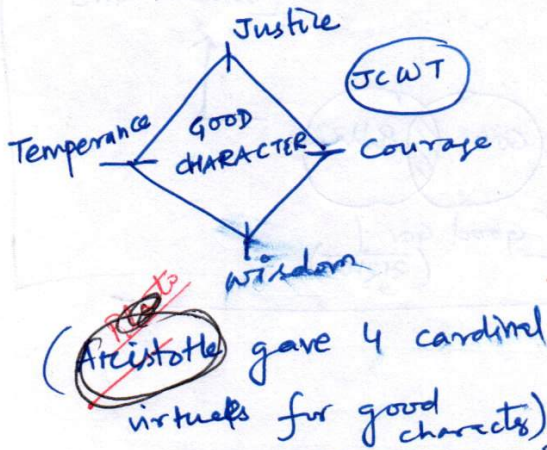 Justice
JCWT
Temperance
GOOD
CHARACTER
Courage
Wisdom
Plato
(Aristotle gave 4 cardinal
virtues for good
character)